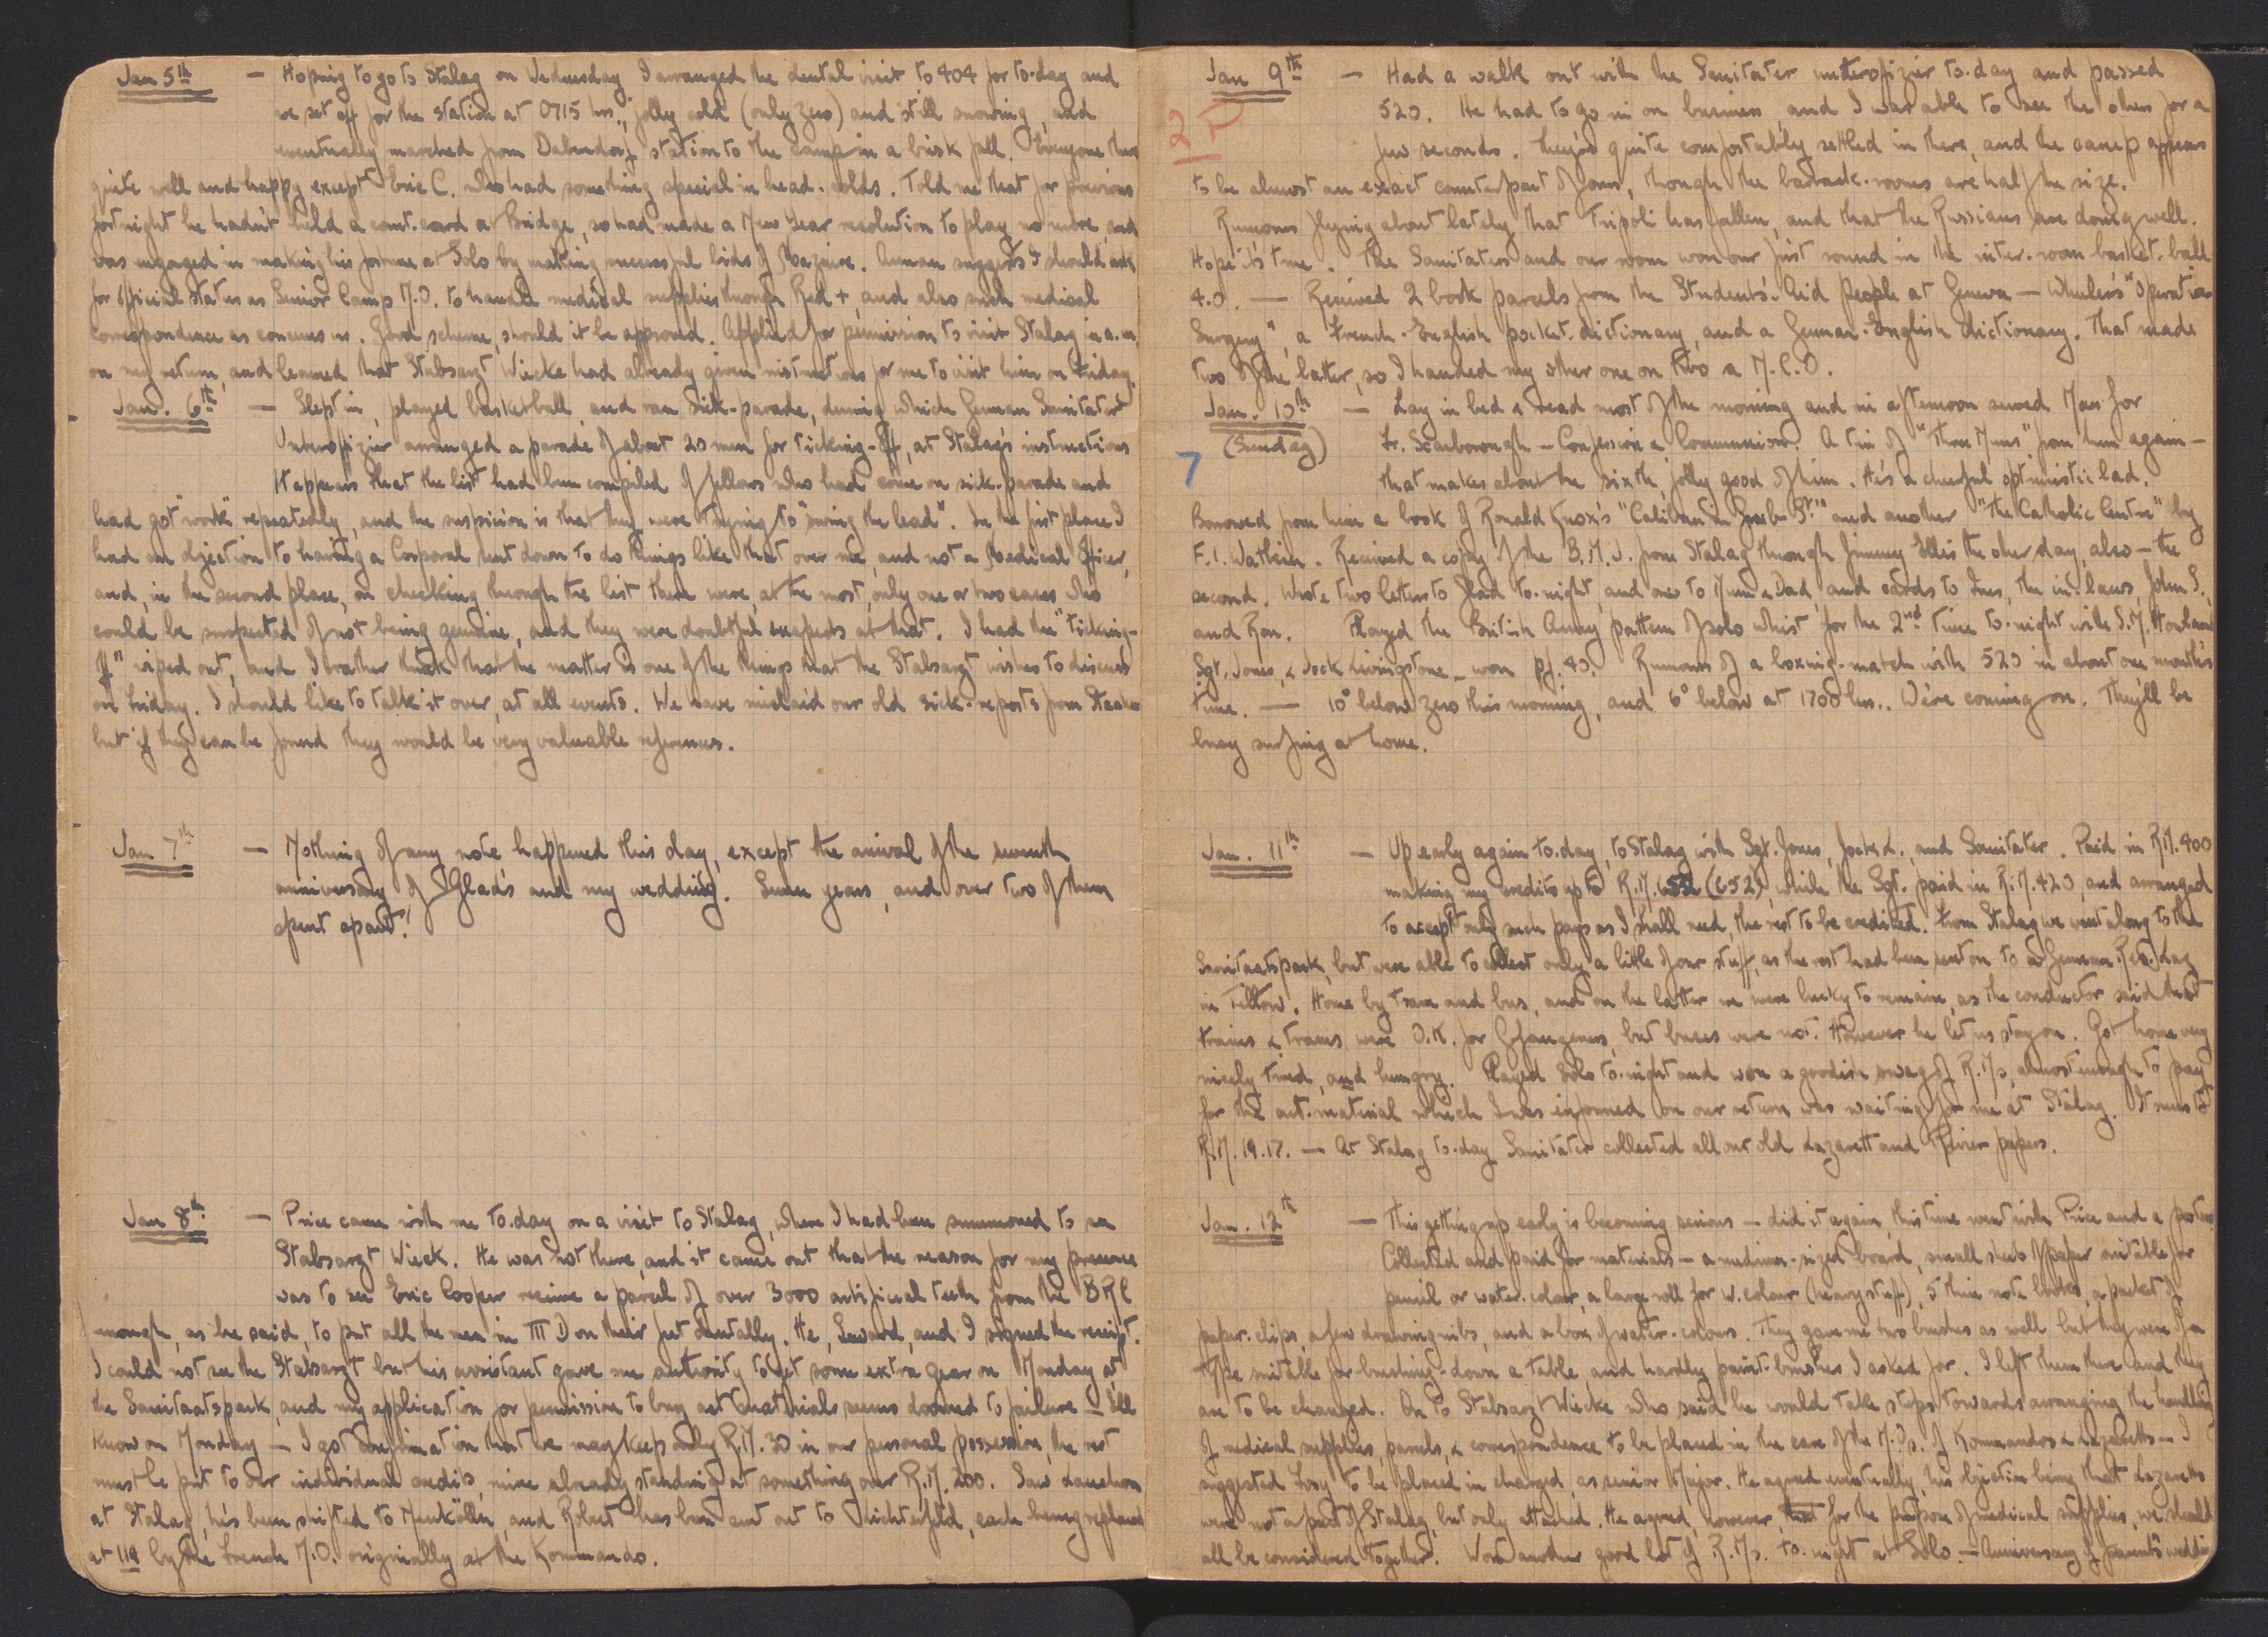 Jan 5th — Hoping to go to Stalag on Wednesday I arranged the dental visit to 404 for to-day and
we set off for the station at 0715 hrs., jolly cold (only zero) and still snowing, and
eventually marched from Dabendorf station to the camp in a brisk fall. Everyone there
quite well and happy except Eric C. who had something special in head-colds. Told me that for previous
fortnight he hadn't held a court-card at Bridge, so had made a New Year resolution to play no more, and
was engaged in making his fortune at Solo by making successful bids of Mazaire. Auman suggests I should ask
for official status as Senior Camp M.O. to handle medical supplies through Red +, and also such medical
correspondence as concerns us. Good scheme, should it be approved. Applied for permission to visit Stalag in a.m.
on my return, and learned that Stabsarzt Wiecke had already given instructions for me to visit him on Friday.
Jan. 6th — Slept in, played basketball, and ran sick-parade, during which German Sanitater
Unteroffizier arranged a parade of about 20 men for ticking-off, at Stalag's instructions
It appears that the list had been compiled of fellows who had come on sick-parade and
had got "work" repeatedly, and the suspicion is that they were trying to "swing the lead". In the first place I
had an objection to having a Corporal sent down to do things like that over me, and not a Medical Officer,
and, in the second place, on checking through the list there were, at the most, only one or two cases who
could be suspected of not being genuine, and they were doubtful suspects at that. I had the "ticking-
off" wiped out, and I rather think that the matter is one of the things that the Stabsarzt wishes to discuss
on Friday. I should like to talk it over, at all events. We have mislaid our old sick-reports from
but if they can be found they would be very valuable references.
Jan 7th — Nothing of any note happened this day, except the arrival of the seventh
anniversary of Glad's and my wedding. Seven years, and over two of them
spent apart!
Jan 8th — Price came with me to-day on a visit to Stalag, where I had been summoned to see
Stabsarzt Wieck. He was not there, and it came out that the reason for my presence
was to see Eric Cooper receive a parcel of over 3000 artificial teeth from the BRC
enough, as he said, to put all the men in III D on their feet dentally. He, Seward, and I signed the receipt.
I could not see the Stabsarzt but his assistant gave me authority to get some extra gear on Monday at
the Sanitaatspark, and my application for permission to buy art materials seems doomed to failure — I'll
know on Monday — I got confirmation that we may keep only R.M. 30 in our personal possession, the rest
must be put to our individual credits, mine already standing at something over R.M. 200. Saw
at Stalag, he's been shifted to Neukölln, and Robert has been sent out to Lichterfeld, each being replaced
at 119 by the French M.O. originally at the Kommando.
Jan 9th — Had a walk out with the Sanitater unteroffizier to-day and passed
2P
520. He had to go in on business, and I was able to see the others for a
few seconds. They're quite comfortably settled in there, and the camp appears
to be almost an exact counterpart of ours, though the barrack-rooms are half the size.
Rumours flying about lately that Tripoli has fallen, and that the Russians are doing well.
Hope it's true. The Sanitaters and our room won our first round in the inter-room basket-ball
4.0. — Received 2 book parcels from the Students' Aid People at Geneva — Wheeler's "Operative
Surgery", a French-English pocket-dictionary, and a German-English dictionary. That made
two of the latter, so I handed my other one on to a N.C.O.
Jan. 10th — Lay in bed & read most of the morning and in afternoon served Mass for
(Sunday) Fr. Scarborough — Confession & Communion. A tin of "Three Nuns" from him again —
7 that makes about the sixth, jolly good of him. He's a cheerful optimistic lad.
Borrowed from him a book of Ronald Knox's "Caliban in Grub St." and another "The Catholic Centre" by
E.I. Watkin. Received a copy of the B.M.J. from Stalag through Jimmy Ellis the other day, also — the
second. Wrote two letters to Glad to-night, and one to Mum & Dad, and cards to Ines, the in-laws, John S.,
and Ron. Played the British Army pattern of solo whist for the 2nd time to-night with S.M. Howland
Sgt. Jones, & Jock Livingstone — won pf. 40. Rumours of a boxing-match with 520 in about one month's
time. — 10° below zero this morning, and 6° below at 1700 hrs.. We're coming on. They'll be
busy surfing at home.
Jan. 11th — Up early again to-day, to Stalag with Sgt. Jones, Jock L., and Sanitater. Paid in R.M. 400
making my credits up to R.M. 652 (652), while the Sgt. paid in R.M. 420, and arranged
to accept only such pay as I shall need, the rest to be credited. From Stalag we went along to the
Sanitaatspark, but were able to collect only a little of our stuff, as the rest had been sent on to a German Res. Laz
in Teltow. Home by tram and bus, and on the latter we were lucky to remain, as the conductor said that
trains & trams were O.K. for Gefangenes, but buses were not. However he let us stay on. Got home very
nicely tired, and hungry. Played Solo to-night and won a goodish swag of R.Ms, almost enough to pay
for the art-material which I was informed on our return was waiting for me at Stalag. It runs to
R.M. 19.17. — At Stalag to-day Sanitater collected all our old Lazarett and Revier papers.
Jan. 12th — This getting up early is becoming serious — did it again, this time went with Price and a posten
Collected and paid for materials — a medium-sized board, small sheets of paper suitable for
pencil or water-colour, a large roll for w. colour (heavy stuff), 5 thin note books, a packet of
paper-clips, a few drawing nibs, and a box of water-colours. They gave me two brushes as well but they were of a
type suitable for brushing-down a table and hardly paint-brushes I asked for. I left them there and they
are to be changed. On to Stabsarzt Wiecke who said he would take steps towards arranging the handling
of medical supplies, parcels, & correspondence to be placed in the care of the M.Os. of Kommandos & Lazaretts — I
suggested to be placed in charged, as senior Major. He agreed eventually, his objection being that Lazaretts
were not a part of Stalag, but only attached. He agreed, however, that for the purpose of medical supplies, we should
all be considered together. Won another good lot of R.Ms. to-night at Solo. — Anniversary of parents' wedding